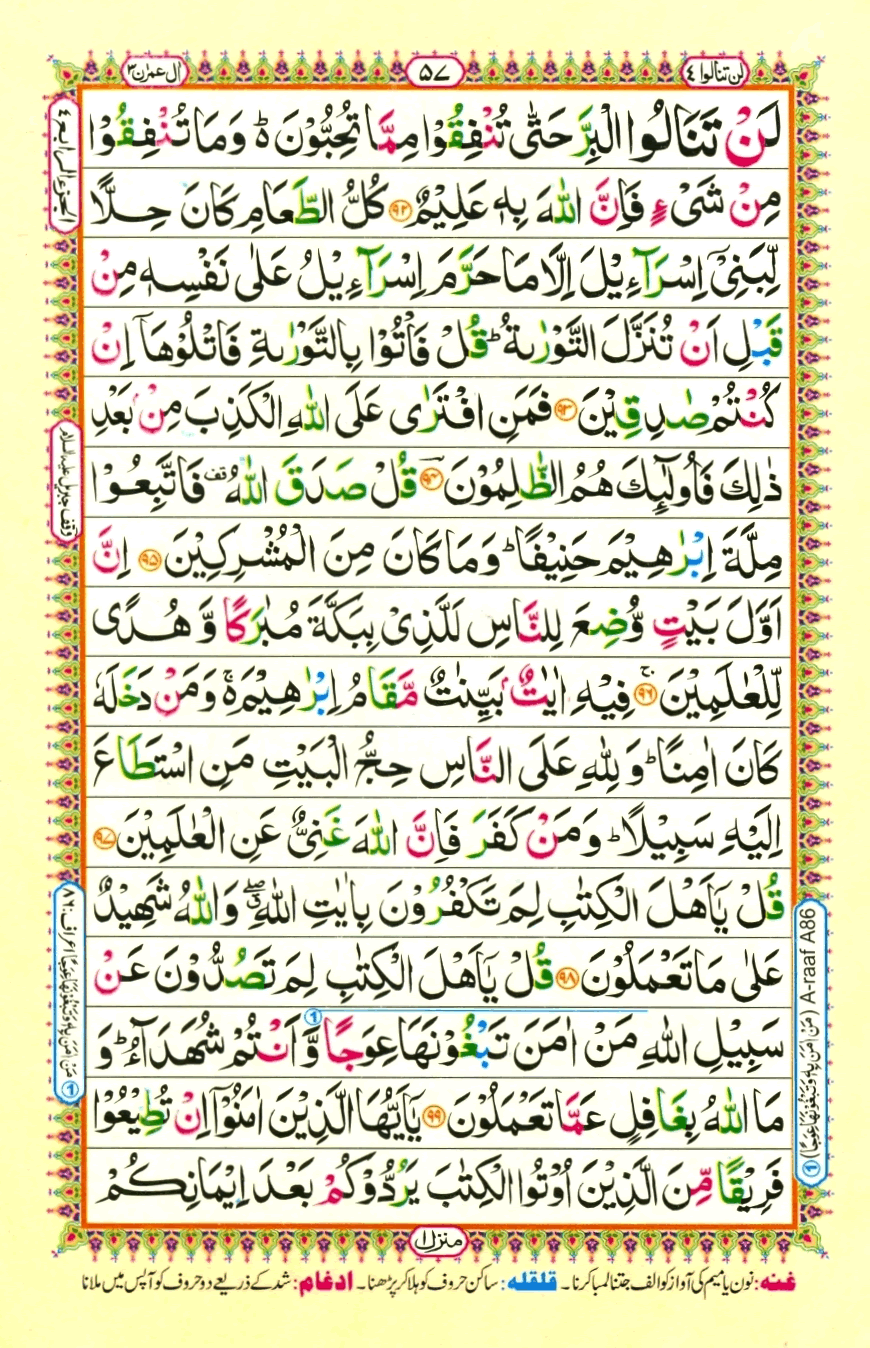 لن تنالوا ٤
۵۷
اٰل عمرٰن ٣
لَنْ تَنَالُوا الْبِرَّ حَتّٰى تُنْفِقُوْا مِمَّا تُحِبُّوْنَ ؕ۬ وَمَا تُنْفِقُوْا
مِنْ شَىْءٍ فَاِنَّ اللّٰهَ بِهٖ عَلِيْمٌ ﴿۹۲﴾ كُلُّ الطَّعَامِ كَانَ حِلًّا
لِّبَنِىْۤ اِسْرَآءِيْلَ اِلَّا مَا حَرَّمَ اِسْرَآءِيْلُ عَلٰى نَفْسِهٖ مِنْ
قَبْلِ اَنْ تُنَزَّلَ التَّوْرٰٮةُ ؕ قُلْ فَاْتُوْا بِالتَّوْرٰٮةِ فَاتْلُوْهَاۤ اِنْ
كُنْتُمْ صٰدِقِيْنَ ﴿۹۳﴾ فَمَنِ افْتَرٰى عَلَى اللّٰهِ الْكَذِبَ مِنْۢ بَعْدِ
ذٰلِكَ فَاُولٰٓٮِٕكَ هُمُ الظّٰلِمُوْنَ ﴿۹۴﴾ قُلْ صَدَقَ اللّٰهُ تف فَاتَّبِعُوْا
مِلَّةَ اِبْرٰهِيْمَ حَنِيْفًا ؕ وَمَا كَانَ مِنَ الْمُشْرِكِيْنَ ﴿۹۵﴾ اِنَّ
اَوَّلَ بَيْتٍ وُّضِعَ لِلنَّاسِ لَلَّذِىْ بِبَكَّةَ مُبٰرَكًا وَّهُدًى
لِّلْعٰلَمِيْنَ ۚ ﴿۹۶﴾ فِيْهِ اٰيٰتٌۢ بَيِّنٰتٌ مَّقَامُ اِبْرٰهِيْمَ ۬ۚ وَمَنْ دَخَلَهٗ
كَانَ اٰمِنًا ؕ وَلِلّٰهِ عَلَى النَّاسِ حِجُّ الْبَيْتِ مَنِ اسْتَطَاعَ
اِلَيْهِ سَبِيْلًا ؕ وَمَنْ كَفَرَ فَاِنَّ اللّٰهَ غَنِىٌّ عَنِ الْعٰلَمِيْنَ ﴿۹۷﴾
قُلْ يٰۤاَهْلَ الْكِتٰبِ لِمَ تَكْفُرُوْنَ بِاٰيٰتِ اللّٰهِ ۖۗ وَاللّٰهُ شَهِيْدٌ
عَلٰى مَا تَعْمَلُوْنَ ﴿۹۸﴾ قُلْ يٰۤاَهْلَ الْكِتٰبِ لِمَ تَصُدُّوْنَ عَنْ
سَبِيْلِ اللّٰهِ مَنْ اٰمَنَ تَبْغُوْنَهَا عِوَجًا ① وَّاَنْتُمْ شُهَدَآءُ ؕ وَ
مَا اللّٰهُ بِغَافِلٍ عَمَّا تَعْمَلُوْنَ ﴿۹۹﴾ يٰۤاَيُّهَا الَّذِيْنَ اٰمَنُوْۤا اِنْ تُطِيْعُوْا
فَرِيْقًا مِّنَ الَّذِيْنَ اُوْتُوا الْكِتٰبَ يَرُدُّوْكُمْ بَعْدَ اِيْمَانِكُمْ
الجزء الرابع ٤
وقف جبريل عليه السلام
① مَنْ اٰمَنَ بِهٖ وَتَبْغُوْنَهَا عِوَجًا اعراف: ۸٦
① (مَنْ اٰمَنَ بِهٖ وَتَبْغُوْنَهَا عِوَجًا) A-raaf A86
منزل ١
غنه: نون یا میم کی آواز کو الف جتنا لمبا کرنا۔ قلقله: ساکن حروف کو ہلا کر پڑھنا۔ ادغام: شد کے ذریعے دو حروف کو آپس میں ملانا